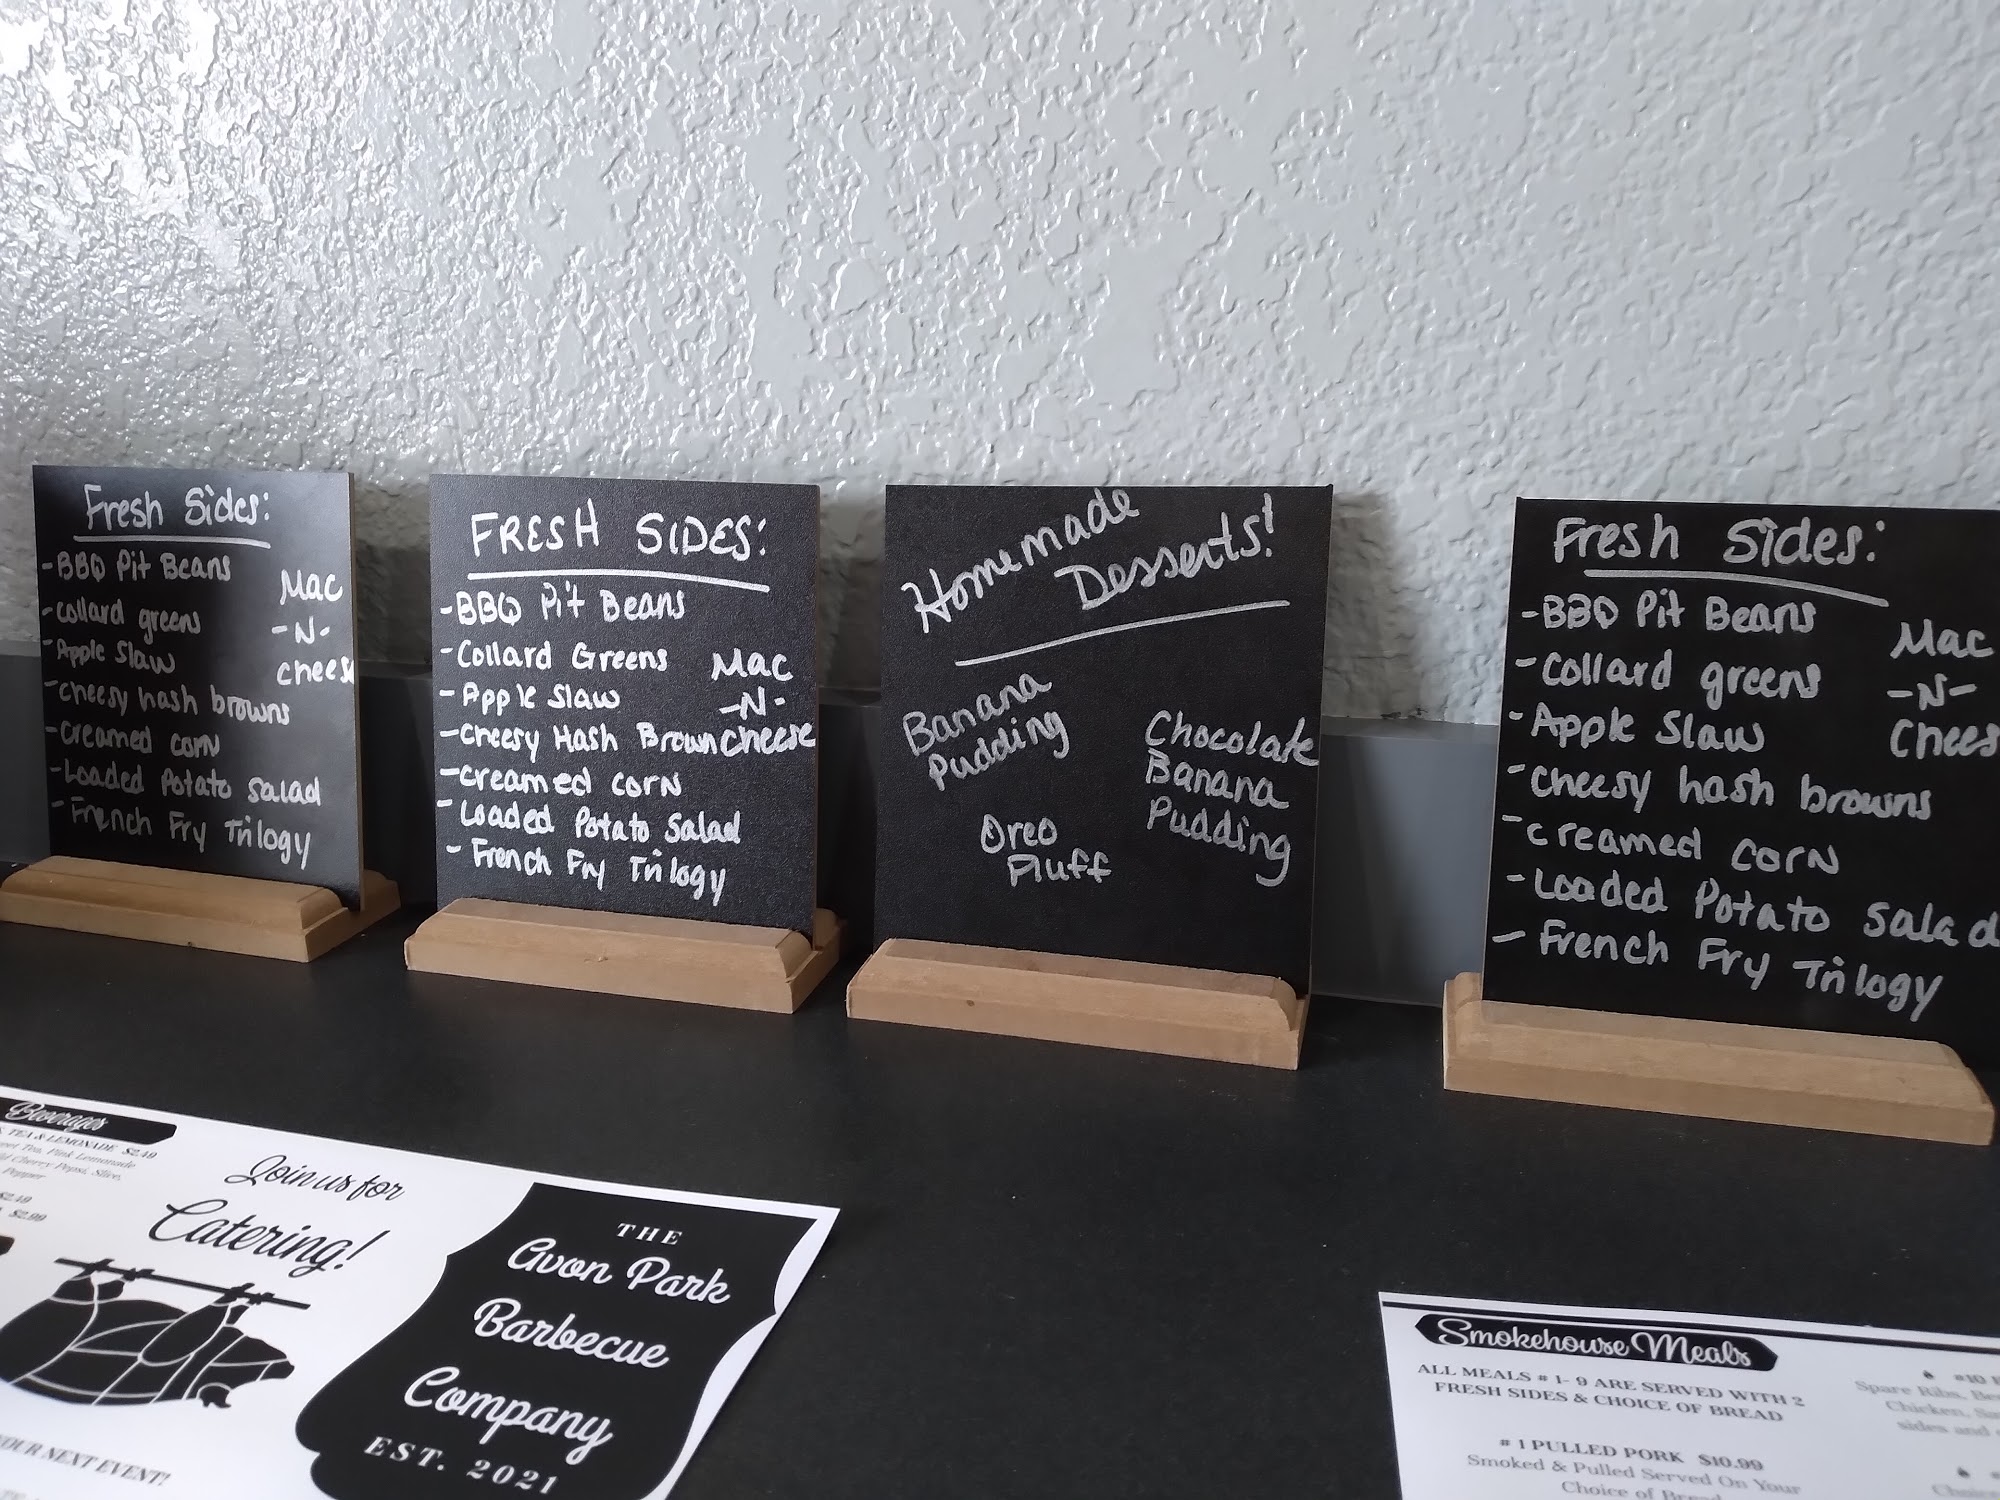 Fresh Sides:
-BBQ Pit Beans
-collard greens
-Apple Slaw
-cheesy hash browns
-creamed corn
-Loaded Potato Salad
-French Fry Trilogy
Mac
-N-
cheese
FRESH SIDES:
-BBQ Pit Beans
-Collard Greens
-Apple Slaw
-Cheesy Hash Brown
-creamed corn
-Loaded Potato Salad
-French Fry Trilogy
Mac
-N-
cheese
Homemade
Desserts!
Banana
Pudding
Chocolate
Banana
Pudding
Oreo
Fluff
Fresh Sides:
-BBQ Pit Beans
-Collard greens
-Apple Slaw
-Cheesy hash browns
-creamed corn
-Loaded Potato Salad
-French Fry Trilogy
Mac
-N-
Chees
Beverages
TEA & LEMONADE $2.49
Tea, Pink Lemonade
Cherry Pepsi, Slice,
Pepper
$2.49
$2.99
Join us for
Catering!
YOUR NEXT EVENT!
THE
Avon Park
Barbecue
Company
EST. 2021
Smokehouse Meals
ALL MEALS # 1- 9 ARE SERVED WITH 2
FRESH SIDES & CHOICE OF BREAD
# 1 PULLED PORK $10.99
Smoked & Pulled Served On Your
Choice of Bread
#10
Spare Ribs,
Chicken,
sides and